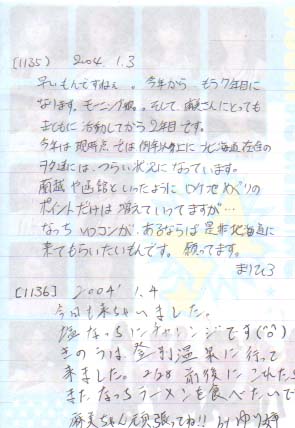 [1135] 2004.1.3
早いもんですねぇ。今年から もう7年目に
なります。モーニング娘。そして、麻美さんにとっても
まじもに活動してから2年目です。
今年は現時点では例年以上に北海道在住の
ヲタ達には、つらい状況になっています。
函館といったように ロケ地めぐりの
ポイントだけは 増えていってますが…
なっち ソロコンが、あるならば 是非北海道に
来てもらいたいもんです。願ってます。
まりひろ
[1136] 2004' 1.4
今日も来ちゃいました。
塩なっちにチャレンジです(^o^)
きのうは登別温泉に行って
来ました。2/28 前後に これたら
また なっちラーメンを食べたいで
麻美ちゃん頑張ってね!! by ゆり